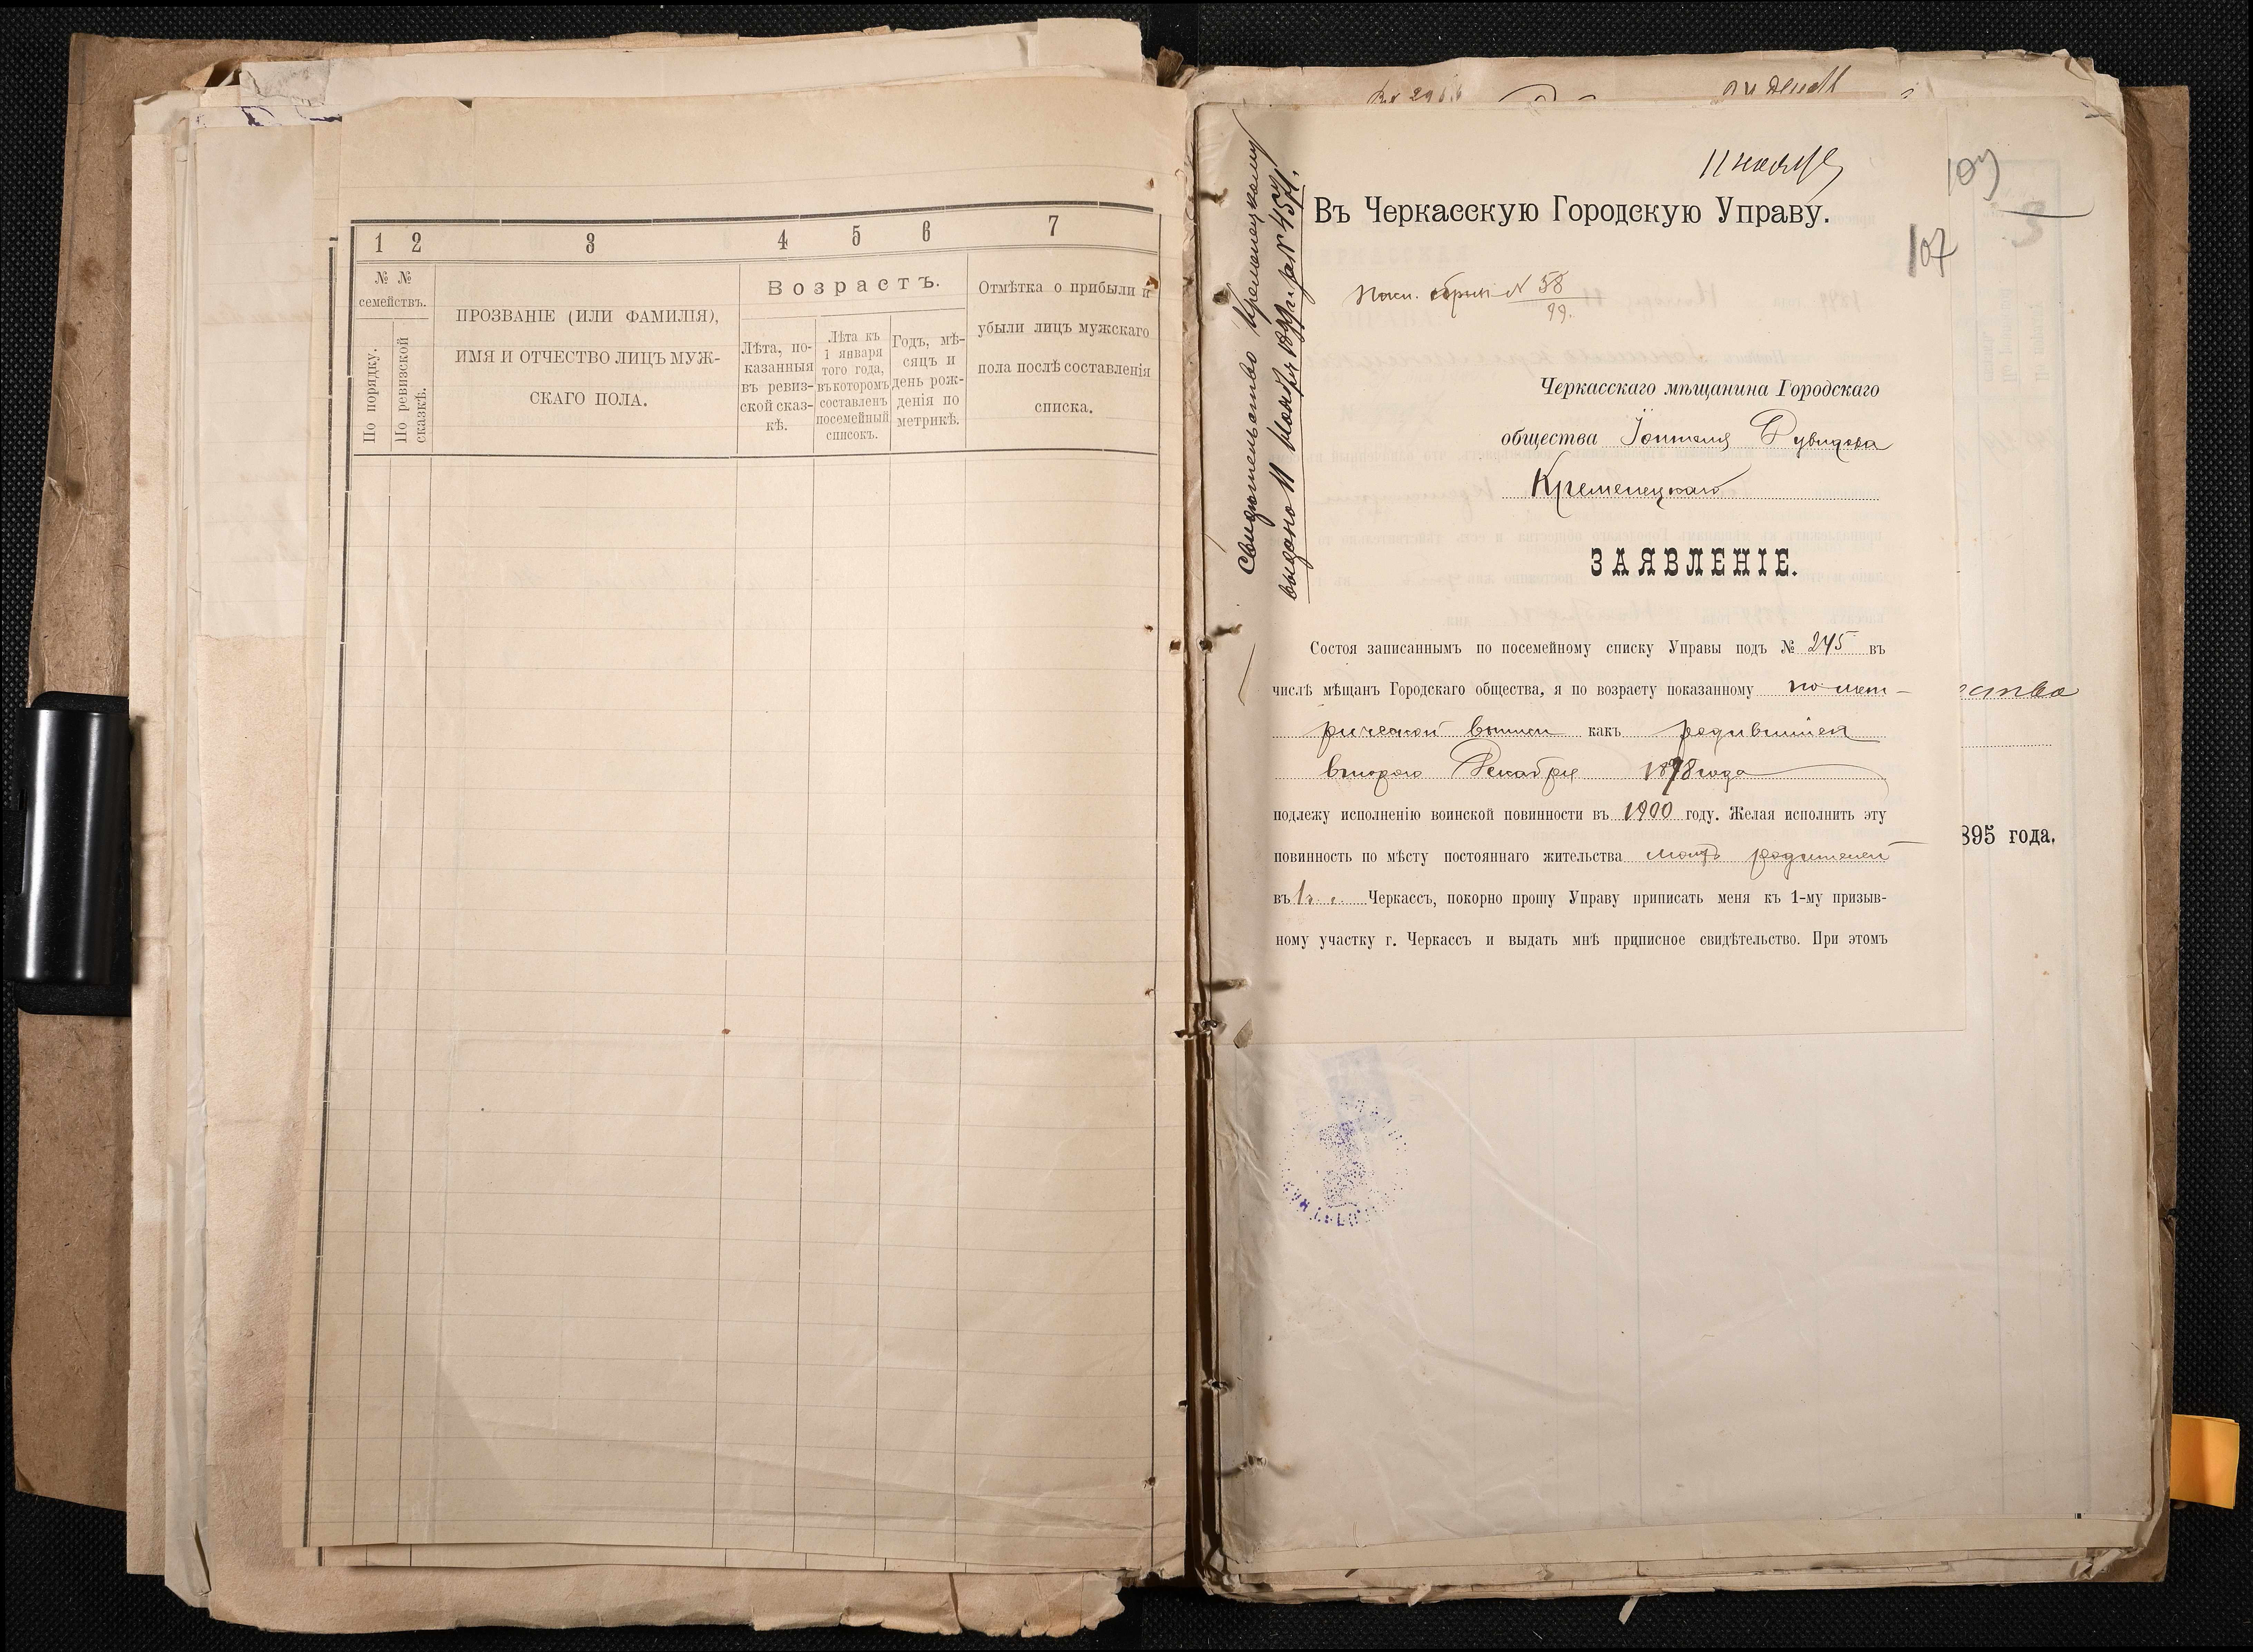 1 2 3 4 5 6 7
№ № семействъ.
По порядку.
По ревизской сказкѣ.
ПРОЗВАНІЕ (ИЛИ ФАМИЛІЯ),
ИМЯ И ОТЧЕСТВО ЛИЦЪ МУЖ-
СКАГО ПОЛА.
Возрастъ.
Лѣта, по-
казанныя
въ ревиз-
ской сказ-
кѣ.
Лѣта къ
1 января
того года,
въ которомъ
составленъ
посемейный
списокъ.
Годъ, мѣ-
сяцъ и
день рож-
денія по
метрикѣ.
Отмѣтка о прибыли и
убыли лицъ мужскаго
пола послѣ составленія
списка.
11 ноября
107
107
Въ Черкасскую Городскую Управу.
№ 58
99.
Свидѣтельство Кременецкому
выдано 11 Ноября 1899 г. за № 4571.
Черкасскаго мѣщанина Городскаго
общества Дувидова
Кременецкаго
ЗАЯВЛЕНІЕ.
Состоя записаннымъ по посемейному списку Управы подъ № 245 въ
числѣ мѣщанъ Городскаго общества, я по возрасту показанному по мет-
рической выписи какъ родившійся
второго Декабря 1878 года
подлежу исполненію воинской повинности въ 1900 году. Желая исполнить эту
повинность по мѣсту постояннаго жительства моихъ родителей
въ г. Черкассъ, покорно прошу Управу приписать меня къ 1-му призыв-
ному участку г. Черкассъ и выдать мнѣ приписное свидѣтельство. При этомъ
ества
895 года.